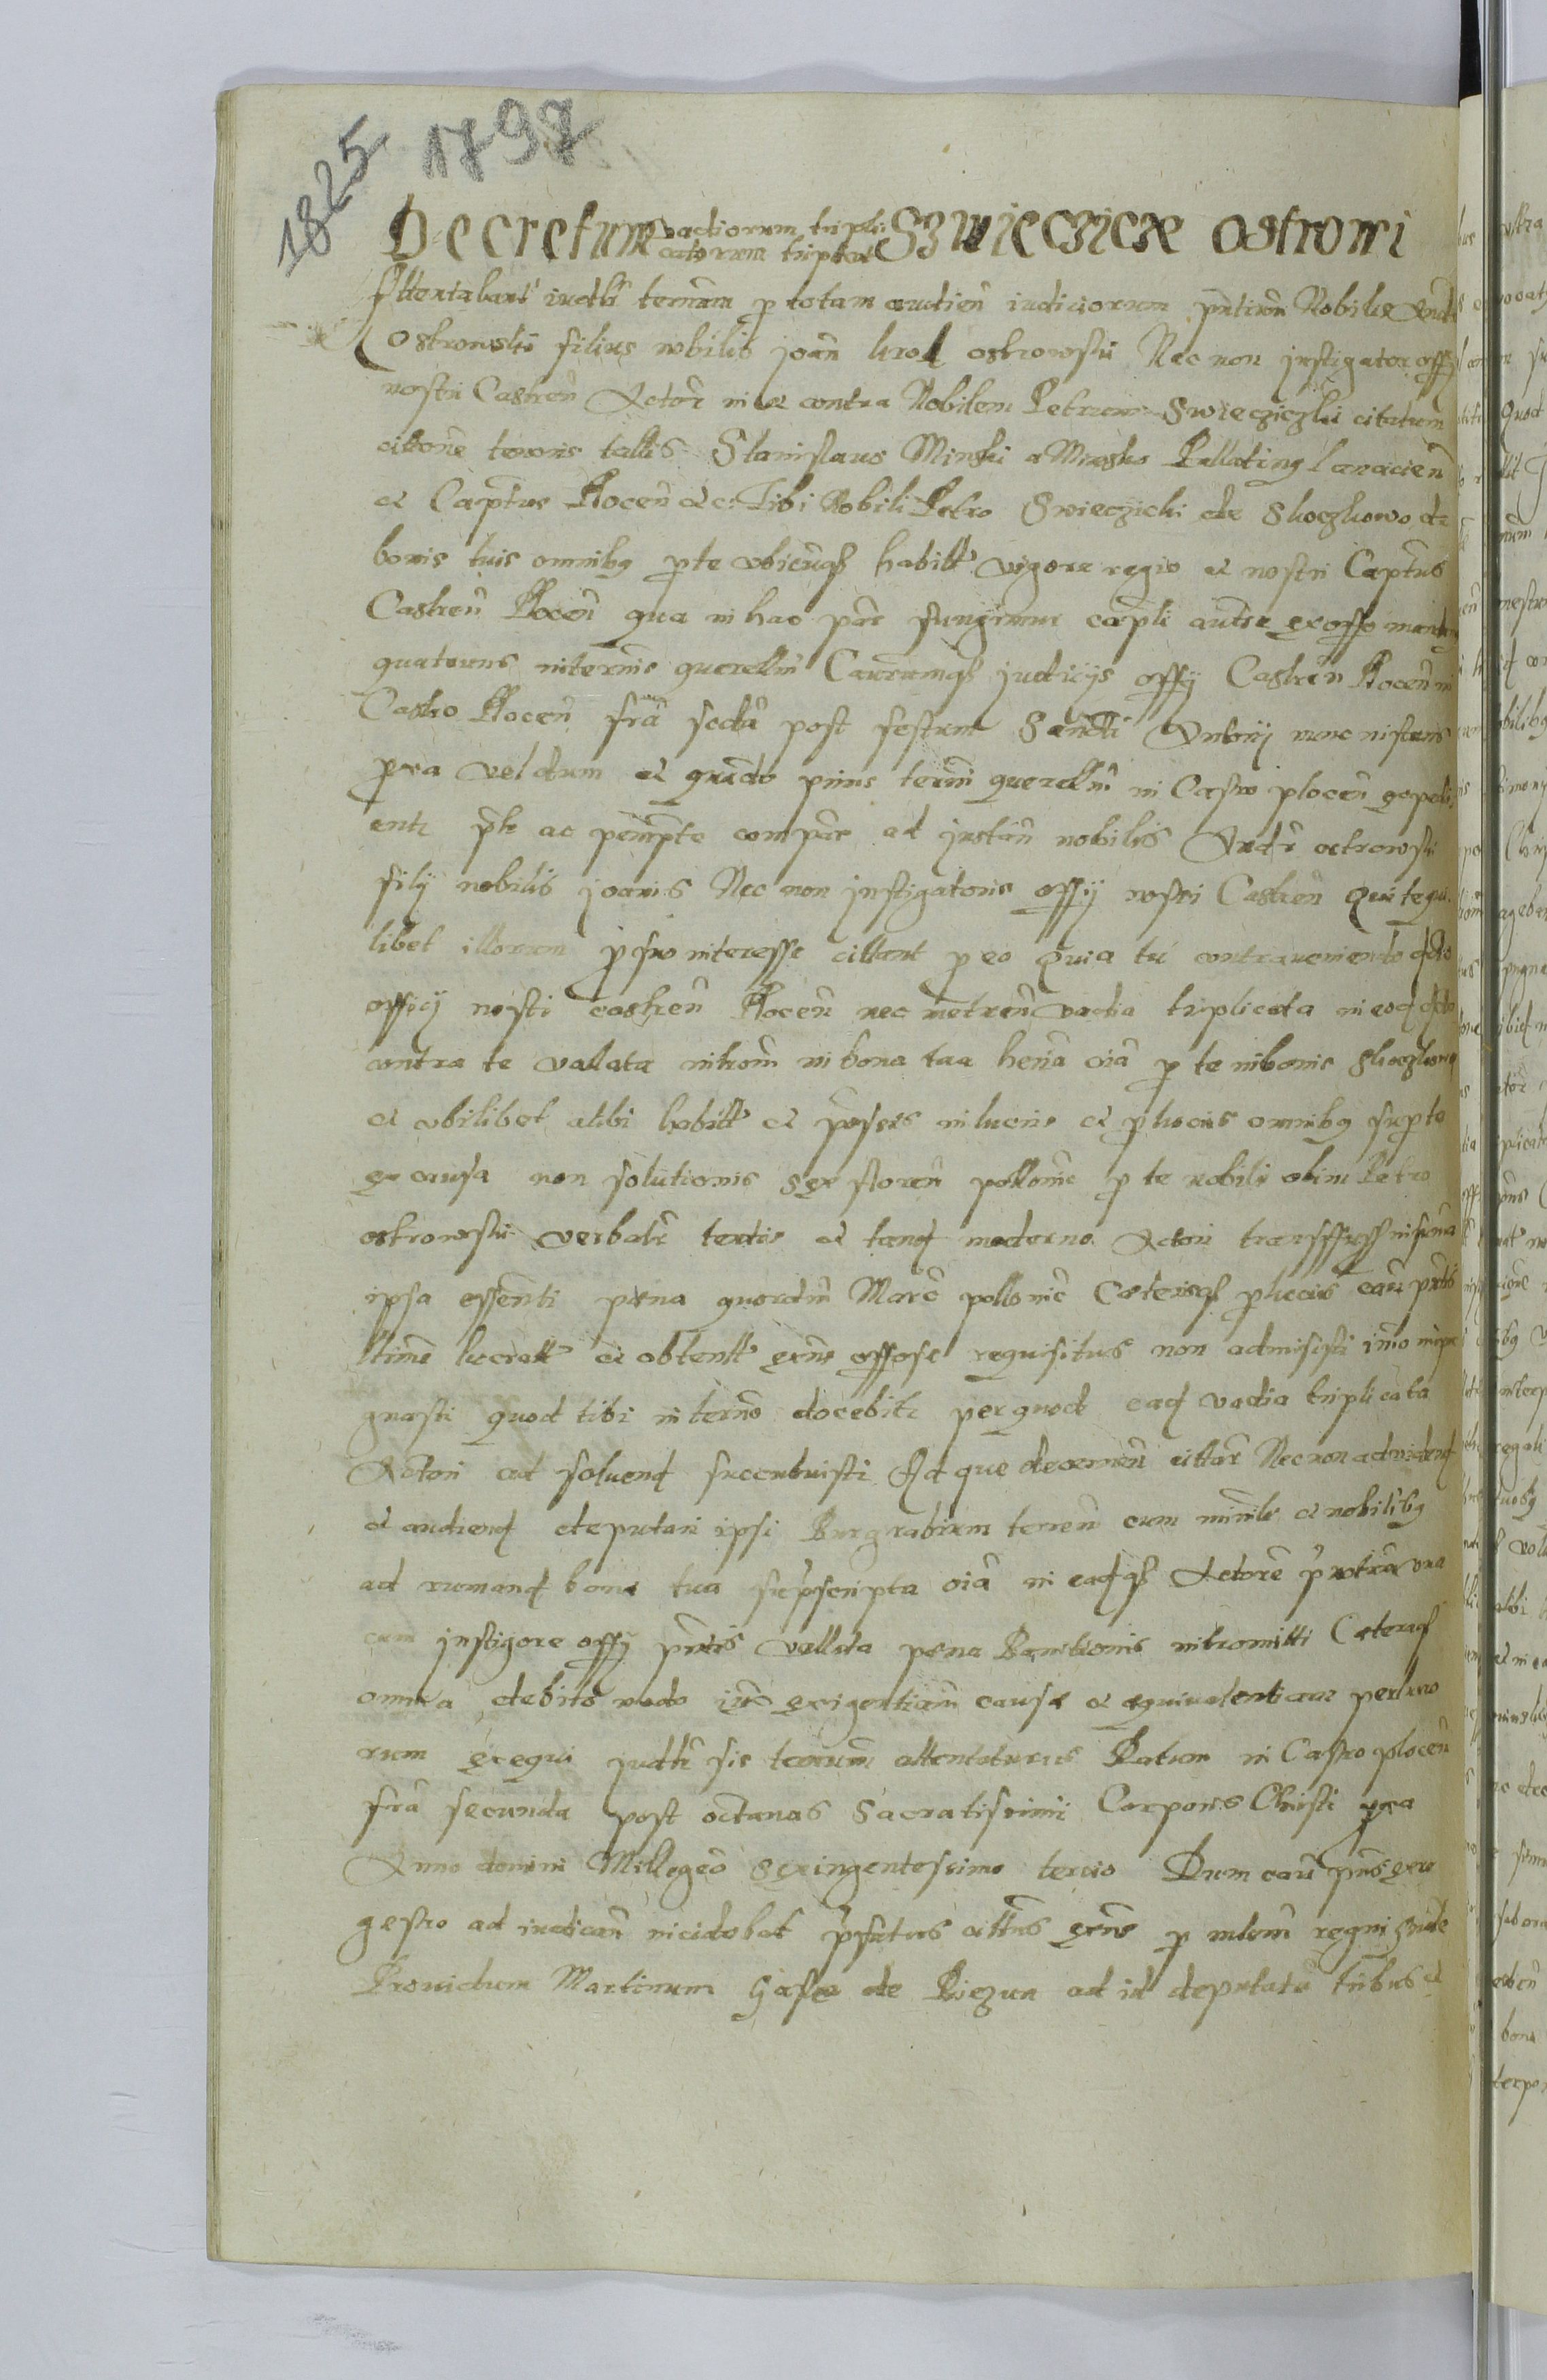 1825
1797
Decretum vadiorum tripli
catorum Szwieczicki Ostrowi
Attentabant iudtr terminum p totam audien iudiciorum pntium Nobilis Andr
Ostrowski filius nobilis joan krol ostrowski Nec non jnstigator offy
nostri Castren Actor in et contra Nobilem Petrum Swieczicki citatum
cittone tenoris tallis Stanislaus Minski a Minsko Pallatinus Lanciciens
et Captus Plocen etc Tibi Nobili Petro Swieczicki de Skoczkowo de
bonis tuis omnibus p te vbicunqz habitt vigore regio et nostri Captus
Castren Plocen qua in hac parte fungimur capli autte ex offo mandamus
quatenus in terminis querellm Carumqz judicijs offy Castren Plocen in
Castro Plocen fria secda post festum Sancti Antonij nunc instans
pxa vel dum et quando primus term querellm in Castro plocen expedi
entr plr ac pemptre compar ad jnstan nobilis Andr ostrowski
filij nobilis joanis Nec non jnstigatoris offij nostri Castren Qui te qui
libet illorum p suo interesse cittant p eo Quia tu contraveniendo dcto
officij nostri castren Plocen nec in vadia triplicata in eod dcto
contra te vallata introm in bona tua heria oia p te in bonis Skoczkowo
et vbilibet alibi habitt et posses in lucris et plucris omnibus supto
ex causa non solutionis sex floren pollonic p te nobili olim Petro
ostrowski verbatr tentis et tand moderno Actori in suma
ipsa essenti pena quordm Marc pollonic Ceterisqz plucris cau
ltime lucratt et obtentt exnr offose requisitus non admisisti imo impu
gnasti quod tibi in termo docebitr per quod ead vadia triplicata
Actori ad soluend succubuisti Ad que decernen cittar Nec non ad vidend
et audiend deputari ipsi Burgrabium terren cum minile et nobilibus
ad rumand bona tua suprscripta oia in eadqz Actore
cum jnstigore offy vallata pena Banitionis intromitti Ceteraqz
omnia debito modo iuxta exigentiam causæ et equivalentiam
rum exequi judtr sis terminum attentaturus Datum in Castro plocen
fria secunda post octauas Sacratissimi Corporis Christi pxa
Anno domini Millegeo sexingentessimo tercio Dum cau pns exre
gestro ad iudican incidebat pfatus cittus exnr p mlem regni gnale
Providum Martinum Gasze de Biezun ad id deputatu tribus et